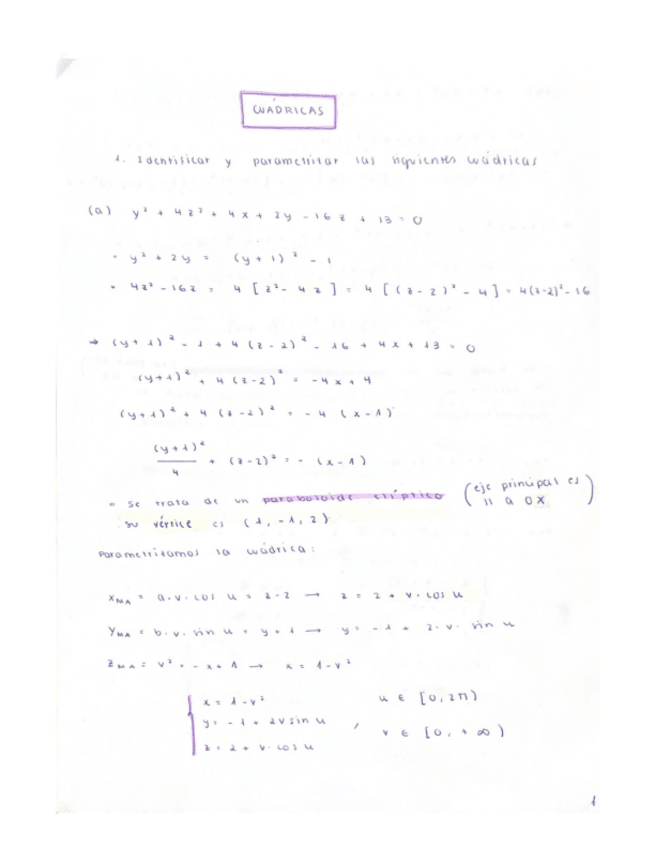 CUÁDRICAS
1. Identificar y parametrizar las siguientes cuádricas
(a) y² + 4z² + 4x + 2y - 16z + 13 = 0
• y² + 2y = (y + 1)² - 1
• 4z² - 16z = 4 [z² - 4z] = 4 [(z - 2)² - 4] = 4(z-2)² - 16
→ (y + 1)² - 1 + 4 (z - 2)² - 16 + 4x + 13 = 0
(y+1)² + 4 (z-2)² = -4x + 4
(y+1)² + 4 (z-2)² = -4 (x-1)
(y+1)²/4 + (z-2)² = - (x-1)
• Se trata de un paraboloide elíptico (eje principal es || a OX)
su vértice es (1, -1, 2)
Parametrizamos la cuádrica:
X_MA = a·v·cos u = z-2 → z = 2 + v·cos u
Y_MA = b·v·sin u = y + 1 → y = -1 + 2·v·sin u
Z_MA = v² = -x + 1 → x = 1 - v²
x = 1 - v² u ∈ [0, 2π)
y = -1 + 2v sin u , v ∈ [0, +∞)
z = 2 + v·cos u
1